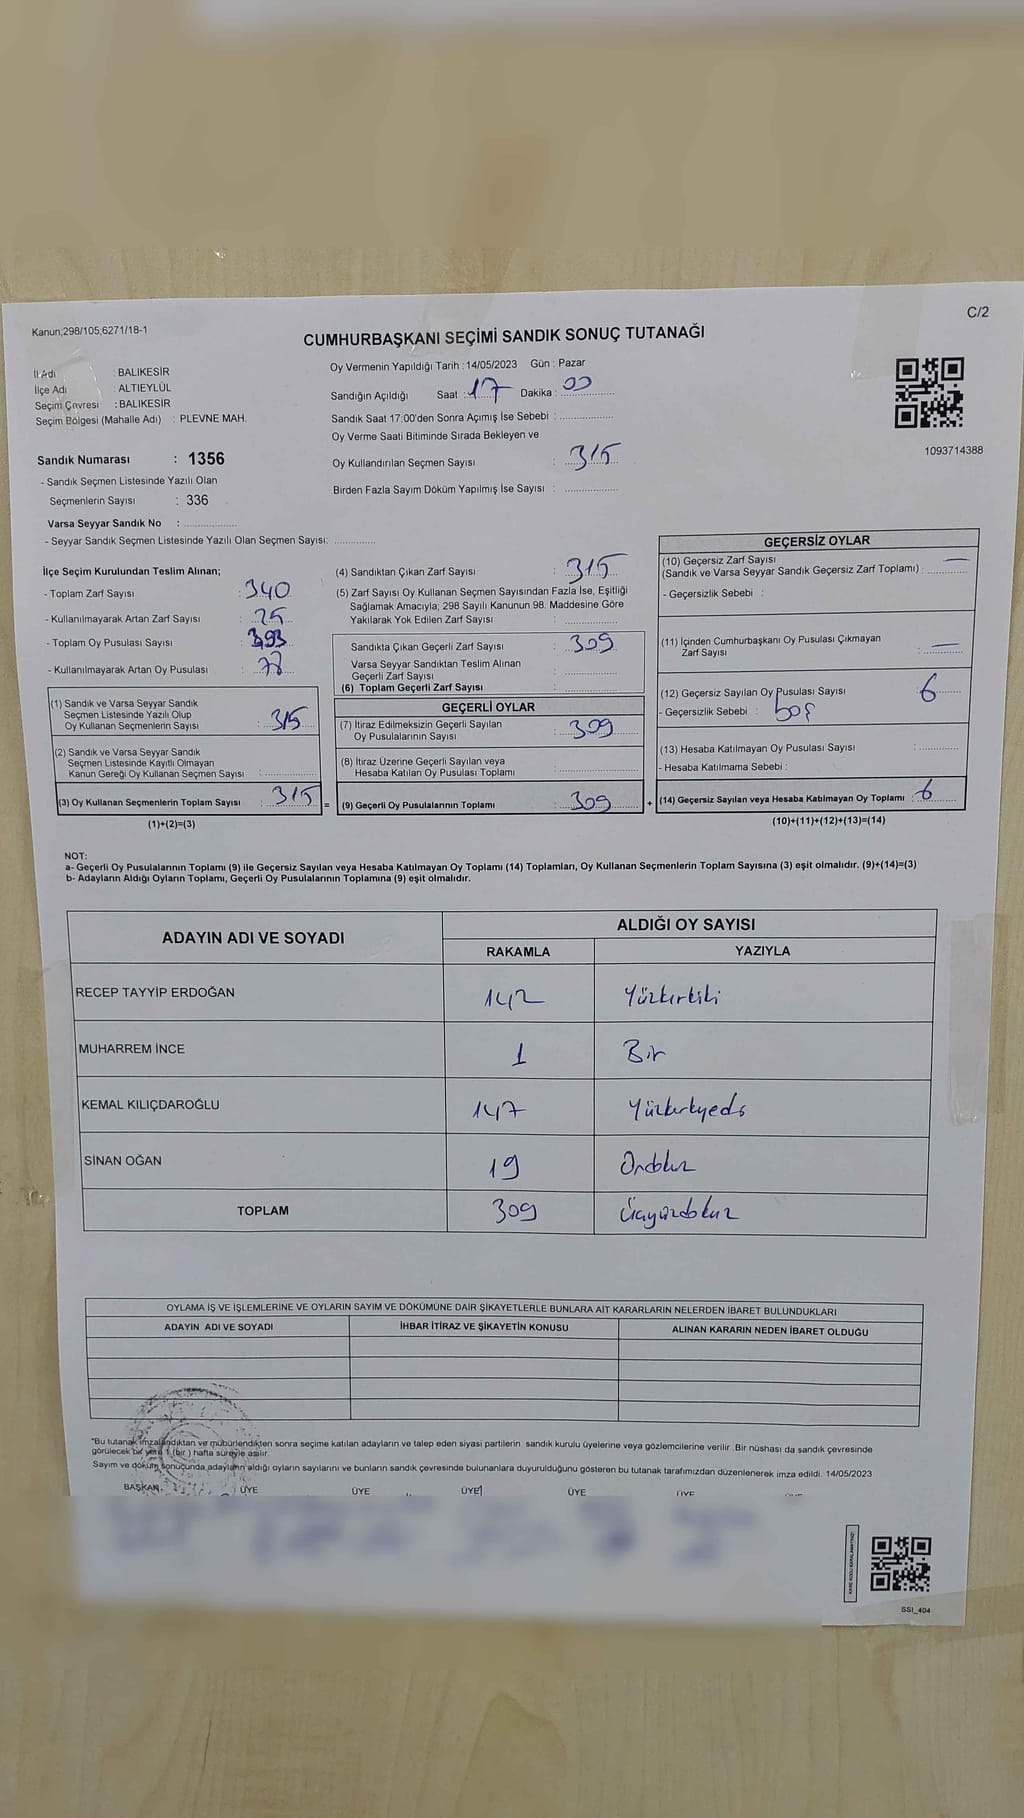 C/2
Kanun;298/105;6271/18-1
CUMHURBAŞKANI SEÇİMİ SANDIK SONUÇ TUTANAĞI
İl Adı : BALIKESİR
İlçe Adı : ALTIEYLÜL
Seçim Çevresi : BALIKESİR
Seçim Bölgesi (Mahalle Adı) : PLEVNE MAH.
Sandık Numarası : 1356
- Sandık Seçmen Listesinde Yazılı Olan
Seçmenlerin Sayısı : 336
Varsa Seyyar Sandık No :
- Seyyar Sandık Seçmen Listesinde Yazılı Olan Seçmen Sayısı:
Oy Vermenin Yapıldığı Tarih :14/05/2023 Gün : Pazar
Sandığın Açıldığı Saat : 17 Dakika : 00
Sandık Saat 17:00'den Sonra Açımış İse Sebebi :
Oy Verme Saati Bitiminde Sırada Bekleyen ve
Oy Kullandırılan Seçmen Sayısı : 315
Birden Fazla Sayım Döküm Yapılmış İse Sayısı :
1093714388
İlçe Seçim Kurulundan Teslim Alınan;
- Toplam Zarf Sayısı : 340
- Kullanılmayarak Artan Zarf Sayısı : 25
- Toplam Oy Pusulası Sayısı : 393
- Kullanılmayarak Artan Oy Pusulası : 78
(1) Sandık ve Varsa Seyyar Sandık
Seçmen Listesinde Yazılı Olup
Oy Kullanan Seçmenlerin Sayısı : 315
(2) Sandık ve Varsa Seyyar Sandık
Seçmen Listesinde Kayıtlı Olmayan
Kanun Gereği Oy Kullanan Seçmen Sayısı :
(3) Oy Kullanan Seçmenlerin Toplam Sayısı : 315 =
(1)+(2)=(3)
(4) Sandıktan Çıkan Zarf Sayısı : 315
(5) Zarf Sayısı Oy Kullanan Seçmen Sayısından Fazla İse, Eşitliği
Sağlamak Amacıyla; 298 Sayılı Kanunun 98. Maddesine Göre
Yakılarak Yok Edilen Zarf Sayısı :
Sandıkta Çıkan Geçerli Zarf Sayısı : 309
Varsa Seyyar Sandıktan Teslim Alınan
Geçerli Zarf Sayısı :
(6) Toplam Geçerli Zarf Sayısı :
GEÇERLİ OYLAR
(7) İtiraz Edilmeksizin Geçerli Sayılan
Oy Pusulalarının Sayısı : 309
(8) İtiraz Üzerine Geçerli Sayılan veya
Hesaba Katılan Oy Pusulası Toplamı :
(9) Geçerli Oy Pusulalarının Toplamı : 309 +
GEÇERSİZ OYLAR
(10) Geçersiz Zarf Sayısı —
(Sandık ve Varsa Seyyar Sandık Geçersiz Zarf Toplamı) :
- Geçersizlik Sebebi :
(11) İçinden Cumhurbaşkanı Oy Pusulası Çıkmayan
Zarf Sayısı : —
(12) Geçersiz Sayılan Oy Pusulası Sayısı : 6
- Geçersizlik Sebebi : boş
(13) Hesaba Katılmayan Oy Pusulası Sayısı :
- Hesaba Katılmama Sebebi :
(14) Geçersiz Sayılan veya Hesaba Katılmayan Oy Toplamı : 6
(10)+(11)+(12)+(13)=(14)
NOT:
a- Geçerli Oy Pusulalarının Toplamı (9) ile Geçersiz Sayılan veya Hesaba Katılmayan Oy Toplamı (14) Toplamları, Oy Kullanan Seçmenlerin Toplam Sayısına (3) eşit olmalıdır. (9)+(14)=(3)
b- Adayların Aldığı Oyların Toplamı, Geçerli Oy Pusulalarının Toplamına (9) eşit olmalıdır.
ADAYIN ADI VE SOYADI ALDIĞI OY SAYISI
RAKAMLA YAZIYLA
RECEP TAYYİP ERDOĞAN 142 Yüzkırkiki
MUHARREM İNCE 1 Bir
KEMAL KILIÇDAROĞLU 147 Yüzkırkyedi
SİNAN OĞAN 19 Ondokuz
TOPLAM 309 Üçyüzdokuz
OYLAMA İŞ VE İŞLEMLERİNE VE OYLARIN SAYIM VE DÖKÜMÜNE DAİR ŞİKAYETLERLE BUNLARA AİT KARARLARIN NELERDEN İBARET BULUNDUKLARI
ADAYIN ADI VE SOYADI İHBAR İTİRAZ VE ŞİKAYETİN KONUSU ALINAN KARARIN NEDEN İBARET OLDUĞU
"Bu tutanak imzalandıktan ve mühürlendikten sonra seçime katılan adayların ve talep eden siyasi partilerin sandık kurulu üyelerine veya gözlemcilerine verilir. Bir nüshası da sandık çevresinde
görülecek bir yere 1 (bir ) hafta süreyle asılır.
Sayım ve döküm sonuçunda adayların aldığı oyların sayılarını ve bunların sandık çevresinde bulunanlara duyurulduğunu gösteren bu tutanak tarafımızdan düzenlenerek imza edildi. 14/05/2023
BAŞKAN ÜYE ÜYE ÜYE ÜYE ÜYE
SSI_404